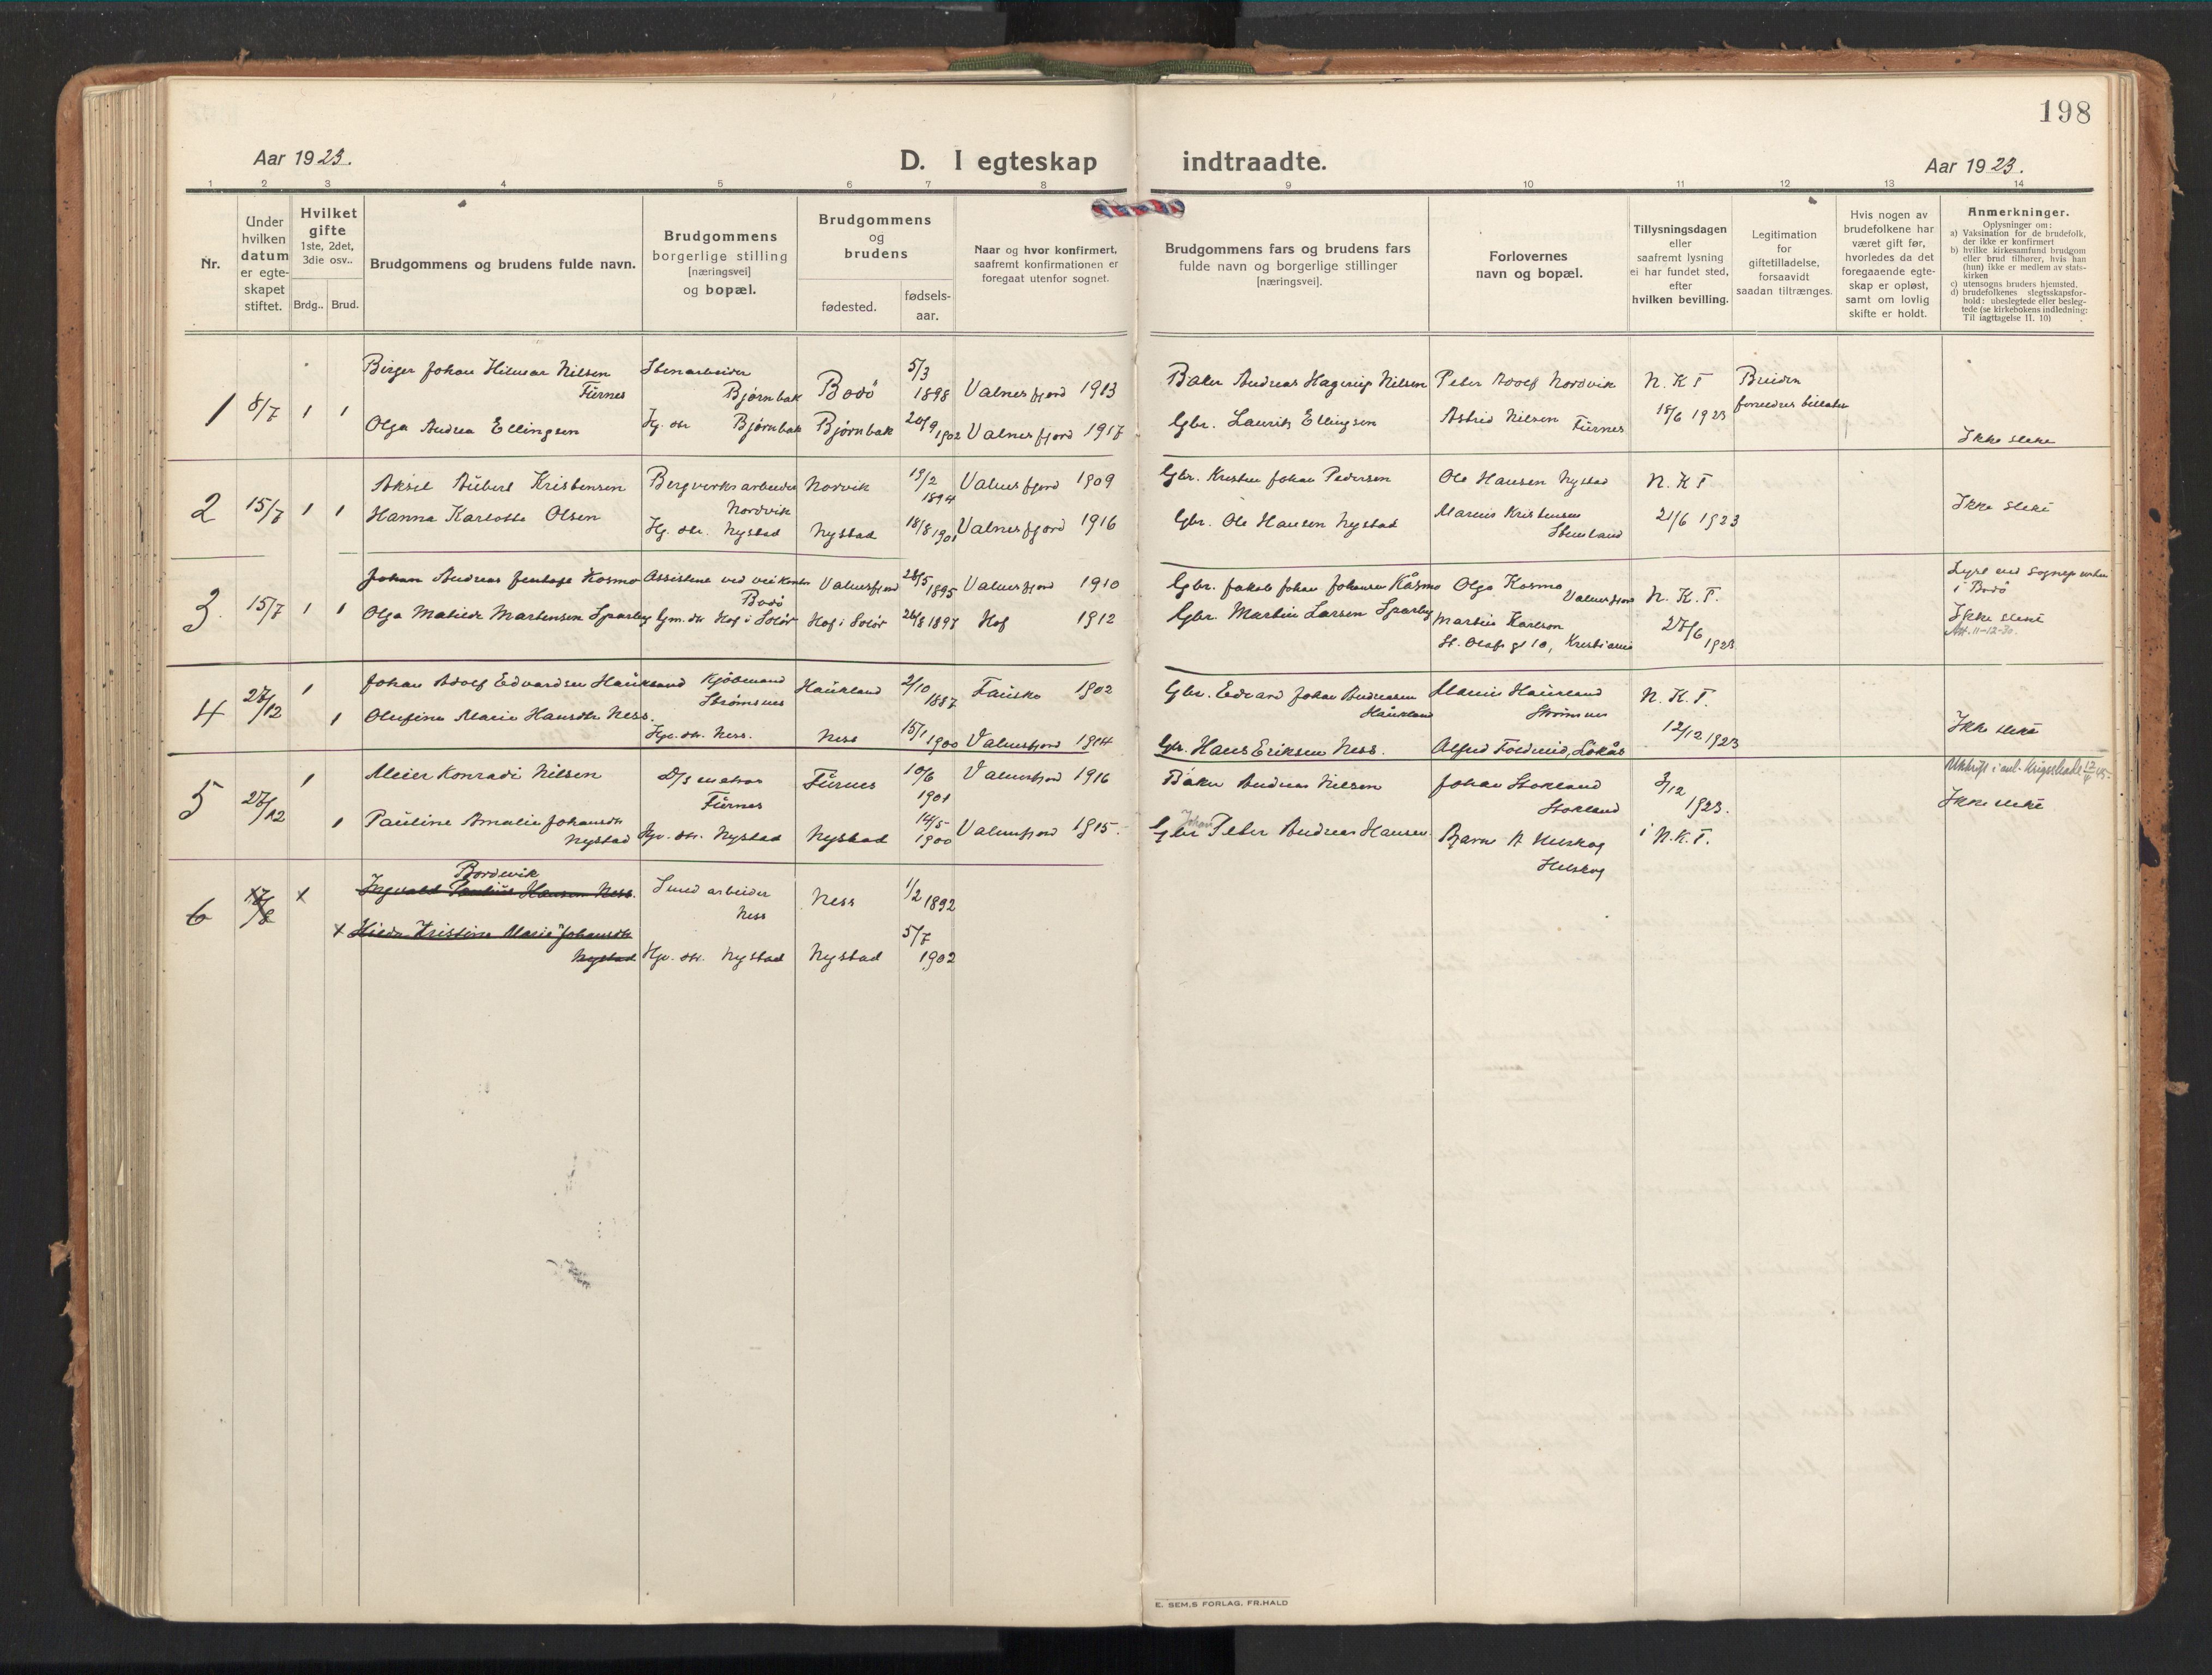 198
Aar 1923.
D. I egteskap indtraadte.
Aar 1923.
1 2 3 4 5 6 7 8 9 10 11 12 13 14
Nr.
Under
hvilken
datum
er egte-
skapet
stiftet.
Hvilket
gifte
1ste, 2det,
3die osv..
Brdg.. Brud.
Brudgommens og brudens fulde navn.
Brudgommens
borgerlige stilling
[næringsvei]
og bopæl.
Brudgommens
og
brudens
fødested.
fødsels-
aar.
Naar og hvor konfirmert,
saafremt konfirmationen er
foregaat utenfor sognet.
Brudgommens fars og brudens fars
fulde navn og borgerlige stillinger
[næringsvei].
Forlovernes
navn og bopæl.
Tillysningsdagen
eller
saafremt lysning
ei har fundet sted,
efter
hvilken bevilling.
Legitimation
for
giftetilladelse,
forsaavidt
saadan tiltrænges.
Hvis nogen av
brudefolkene har
været gift før,
hvorledes da det
foregaaende egte-
skap er opløst,
samt om lovlig
skifte er holdt.
Anmerkninger.
Oplysninger om:
a) Vaksination for de brudefolk,
der ikke er konfirmert
b) hvilke kirkesamfund brudgom
eller brud tilhører, hvis han
(hun) ikke er medlem av stats-
kirken
c) utensogns bruders hjemsted.
d) brudefolkenes slegtsskapsfor-
hold: ubeslegtede eller besleg-
tede (se kirkebokens indledning:
Til iagttagelse II. 10)
1 8/7 1 1
Birger Johan Hilmar Nilsen
Furnes
Stenarbeider
Bjørnbak
Bodö
5/3
1898
Valnesfjord 1913
Baker Andreas Hagerup Nilsen
Peter Adolf Nordvik
N. K T
18/6 1923
Bruden
forældres tilladelse
Olga Andrea Ellingsen
Hj. dtr Bjørnbak
Bjørnbak
20/9 1902
Valnesfjord 1917
Gbr. Laurits Ellingsen
Astrid Nilsen Furnes
Ikke slekt
2 15/7 1 1
Aksel Albert Kristensen
Bergverksarbeider
Nordvik
Norvik
19/2
1894
Valnesfjord 1909
Gbr. Kristen Johan Pedersen
Ole Hansen Nystad
N. K T
21/6 1923
Hanna Karlotte Olsen
Hj. dtr. Nystad
Nystad
18/8 1901
Valnesfjord 1916
Gbr. Ole Hansen Nystad
Marius Kristensen
Stenland
Ikke slekt
3. 15/7 1 1
Johan Andreas Kosmo
Assistent ved veikontor
Bodö
Valnesfjord
28/5 1895
Valnesfjord 1910
Gbr. Jakob Johan Johansen Kåsmo
Olga Kosmo
Valnesfjord
N. K. T.
27/6
1923
Lyst ved Sognepresten
i Bodö
Olga Matilde Martensen Sparby
Gm. dtr Hof i Solör
Hof i Solör
26/8 1897
Hof 1912
Gbr. Martin Larsen Sparby
Martin Karlson
St. Olafs gt 10, Kristiania
Ikke slekt
Att. 11-12-30.
4 27/12 1
1
Johan Adolf Edvardsen Haukland
Kjöbmand
Strømsnes
Haukland
2/10
1887
Fauske 1902
Gbr. Edvard Johan Andreasen
Haukland
Haukland
Strömsnes
N. K. T.
12/12 1923
Olufine Marie Hansdtr Ness.
Hjv. dtr. Ness.
Ness
15/1 1900
Valnesfjord 1914
Gbr. Hans Eriksen Ness.
Alfred Foldmid, Løkås
Ikke slekt
5 27/12 1
1
Meier Konradi Nilsen
D/s matros
Furnes
Furnes
10/6
1901
Valnesfjord 1916
Baker Andreas Nilsen
Johan Stokland
Stokland
3/12
1923.
i N. K. T.
Utskrift i anl. Krigsskade 17/4 45.
Ikke slekt
Pauline Amalie Johansdtr
Nystad
Hjv. dtr. Nystad
Nystad
14/5
1900
Valnesfjord 1915.
Gbr Johan Peter Andreas Hansen
Bjarne A Helskog
Helskog
6 17/8 x
Bordevik
Ingvald Paulius Hansen Ness.
Smed arbeider
Ness
Ness
1/2 1892
x Hilda Kristine Marie Johansdtr
Nystad
Hjv. dtr. Nystad
Nystad
5/7
1902
E. SEM,S FORLAG, FR.HALD